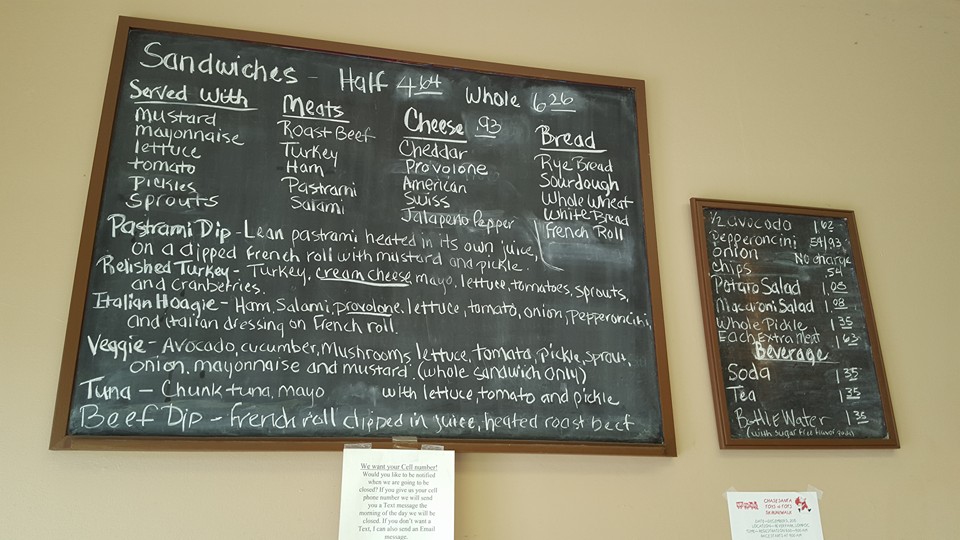 Sandwiches - Half 4.64 Whole 6.26
Served With
Mustard
mayonnaise
lettuce
tomato
Pickles
Sprouts
Meats
Roast Beef
Turkey
Ham
Pastrami
Salami
Cheese .93
Cheddar
Provolone
American
Swiss
Jalapeno Pepper
Bread
Rye Bread
Sourdough
Whole Wheat
White Bread
French Roll
Pastrami Dip - Lean pastrami heated in its own juice,
on a dipped french roll with mustard and pickle.
Relished Turkey - Turkey, cream cheese, mayo, lettuce, tomatoes, sprouts,
and cranberries.
Italian Hoagie - Ham, Salami, provolone, lettuce, tomato, onion, pepperoncini,
and italian dressing on French roll.
Veggie - Avocado, cucumber, Mushrooms, lettuce, tomato, pickle, sprout,
onion, mayonnaise and mustard. (whole sandwich only)
Tuna - Chunk tuna, mayo with lettuce, tomato and pickle
Beef Dip - french roll dipped in juice, heated roast beef
1/2 avocado 1.62
Pepperoncini .54/.93
onion No charge
chips .54
Potato Salad 1.08
Macaroni Salad 1.08
Whole Pickle 1.35
Each Extra Meat 1.62
Beverage
Soda 1.35
Tea 1.35
Bottle Water 1.35
(with sugar free flavor
We want your Cell number!
Would you like to be notified
when we are going to be
closed? If you give us your cell
phone number we will send
you a Text message the
morning of the day we will be
closed. If you don't want a
Text, I can also send an Email
message.